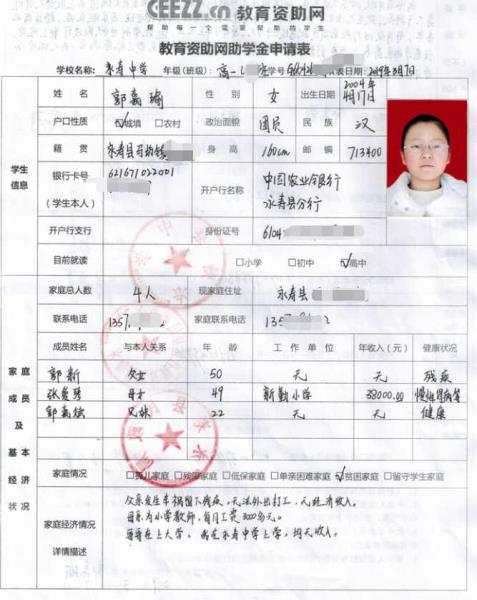 CEEZZ.cn 教育资助网
帮助每一个需要帮助的学生
教育资助网助学金申请表
学校名称: 永寿中学 年级(班级): 高一 学号 填表日期: 2019年3月7日
姓名 郭嘉瑜 性别 女 出生日期 2004年4月17日
户口性质 ☑城镇 □农村 政治面貌 团员 民族 汉
籍贯 永寿县 身高 160cm 邮编 713400
学生信息
银行卡号 (学生本人) 621671022001 开户行名称 中国农业银行永寿县分行
开户行支行 身份证号 6104
目前就读 □小学 □初中 ☑高中
家庭总人数 4人 现家庭住址 永寿县
联系电话 1357 2 家庭联系电话 1357 2
成员姓名 与本人关系 年龄 工作单位 年收入(元) 健康状况
郭新 父女 50 无 无 残疾
49 新勤小学 38000.00 慢性胃病等
兄妹 22 无 无 健康
家庭成员及基本经济状况
家庭情况 □孤儿家庭 □残障家庭 □低保家庭 □单亲困难家庭 ☑贫困家庭 □留守学生家庭
家庭经济情况详情描述
父亲发生车祸留下残疾,无法外出打工,无经济收入。
母亲为小学教师,每月工资3000多元。
哥哥在上大学,我在永寿中学上学,均无收入。